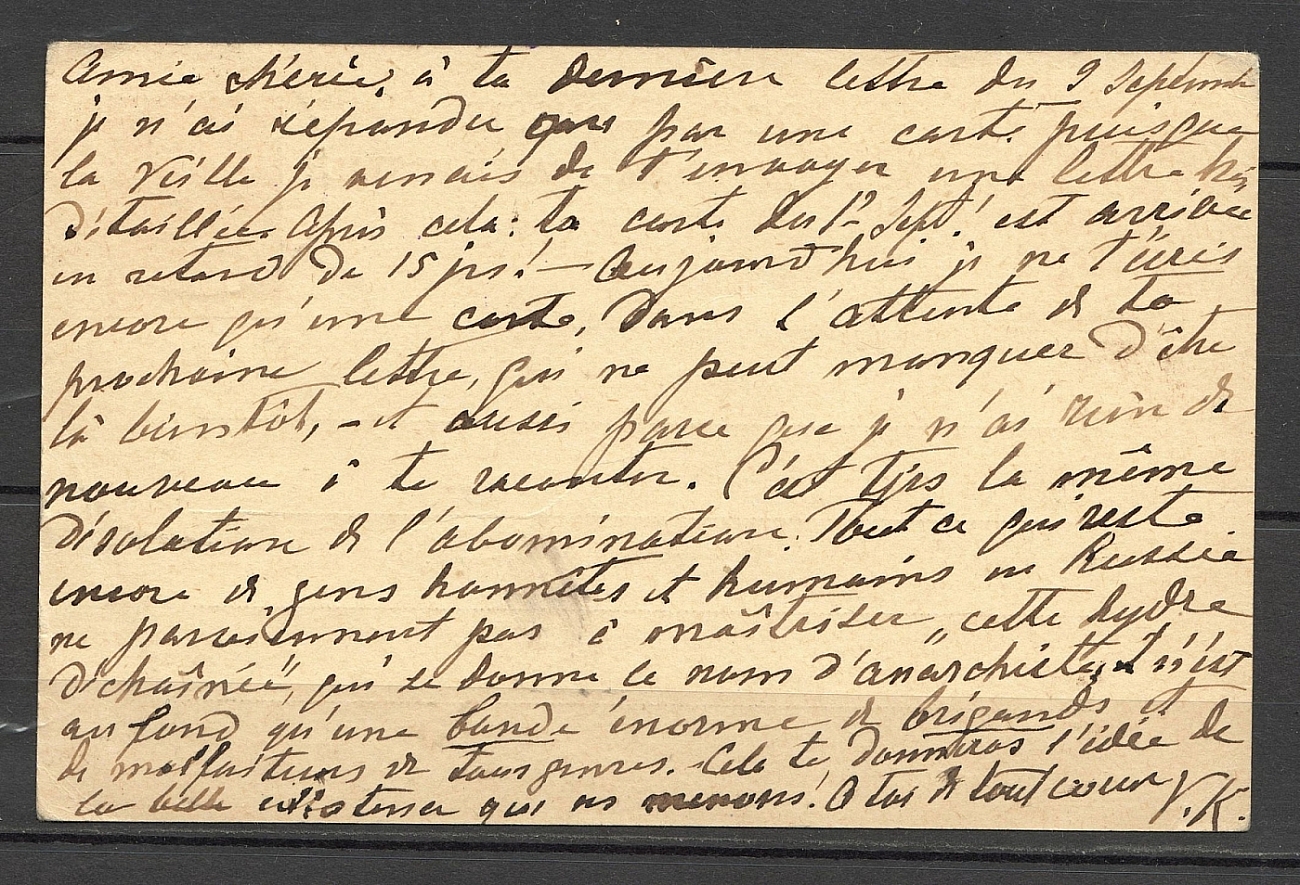 Amie chérie, à ta dernière lettre du 9 Septembre
je n'ai répondu que par une carte puisque
la veille je venais de t'envoyer une lettre très
détaillée. Après cela: ta carte du 1er Sept! est arrivée
en retard de 15 jrs! — Aujourd'hui je ne t'écris
encore qu'une carte, dans l'attente de ta
prochaine lettre, qui ne peut manquer d'être
là bientôt, - et aussi parce que je n'ai rien de
nouveau à te raconter. C'est tjrs la même
désolation de l'abomination. Tout ce qui reste
encore de gens honnêtes et humains en Russie
ne parviennent pas à maîtriser „cette hydre
déchaînée", qui se donne le nom d'anarchiste, et n'est
au fond qu'une bande énorme de brigands et
de malfaiteurs de tous genres. - Cela te donnera l'idée de
la belle existence que ns menons! A toi de tout cœur V. K.